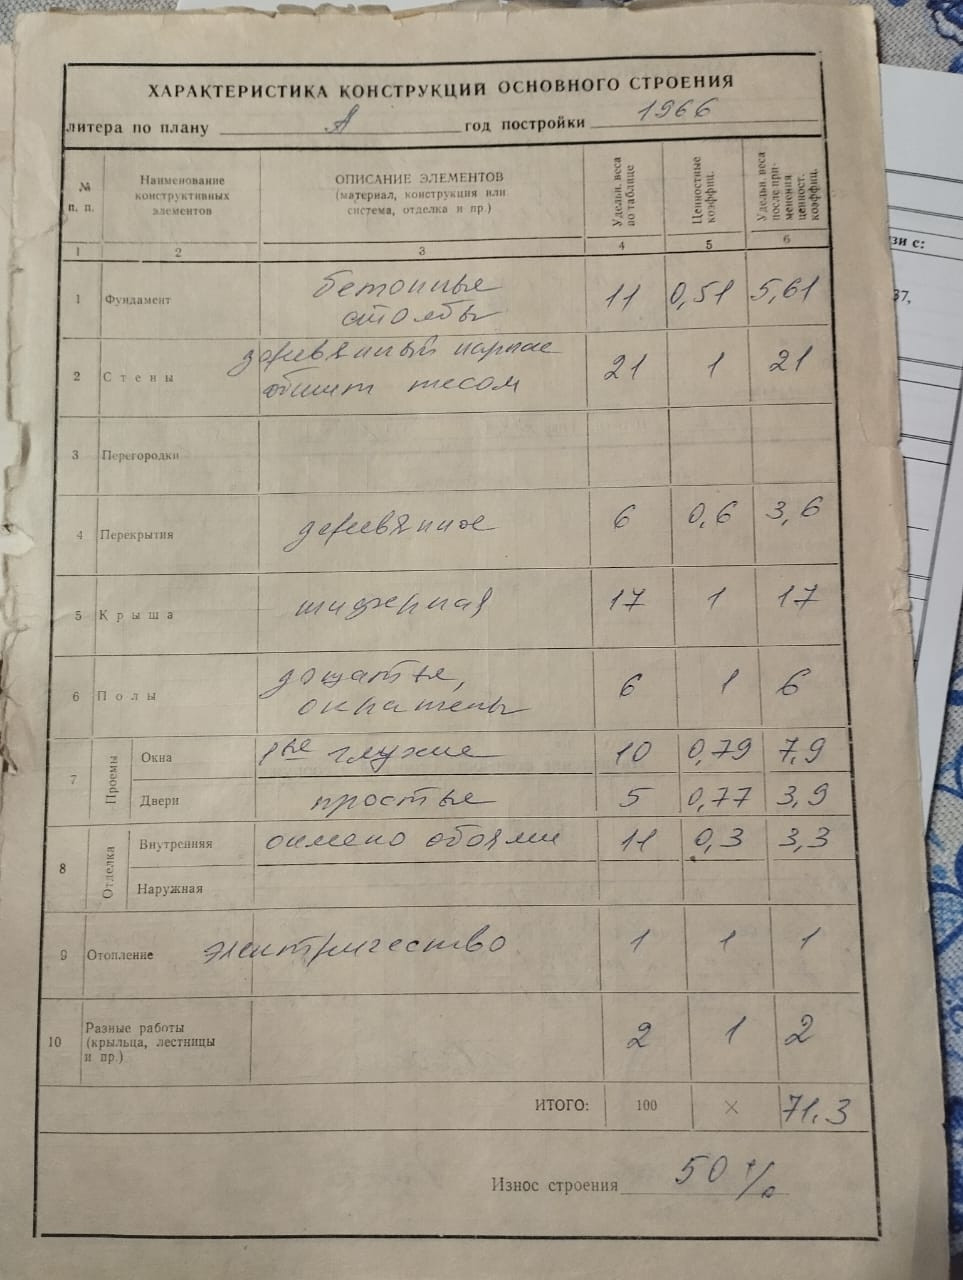 ХАРАКТЕРИСТИКА КОНСТРУКЦИЙ ОСНОВНОГО СТРОЕНИЯ
литера по плану А год постройки 1966
№ п. п. Наименование конструктивных элементов ОПИСАНИЕ ЭЛЕМЕНТОВ (материал, конструкция или система, отделка и пр.) Удельн. веса по таблице Ценностные коэффиц. Удельн. веса после применения ценност. коэффиц.
1 2 3 4 5 6
1 Фундамент бетонные столбы 11 0,51 5,61
2 Стены деревянный каркас обшит тесом 21 1 21
3 Перегородки
4 Перекрытия деревянное 6 0,6 3,6
5 Крыша шиферная 17 1 17
6 Полы дощатые, окрашены 6 1 6
7 Проемы Окна 1ые глухие 10 0,79 7,9
Двери простые 5 0,77 3,9
8 Отделка Внутренняя оклеено обоями 11 0,3 3,3
Наружная
9 Отопление электричество 1 1 1
10 Разные работы (крыльца, лестницы и пр.) 2 1 2
ИТОГО: 100 × 71,3
Износ строения 50 %
зи с:
37,